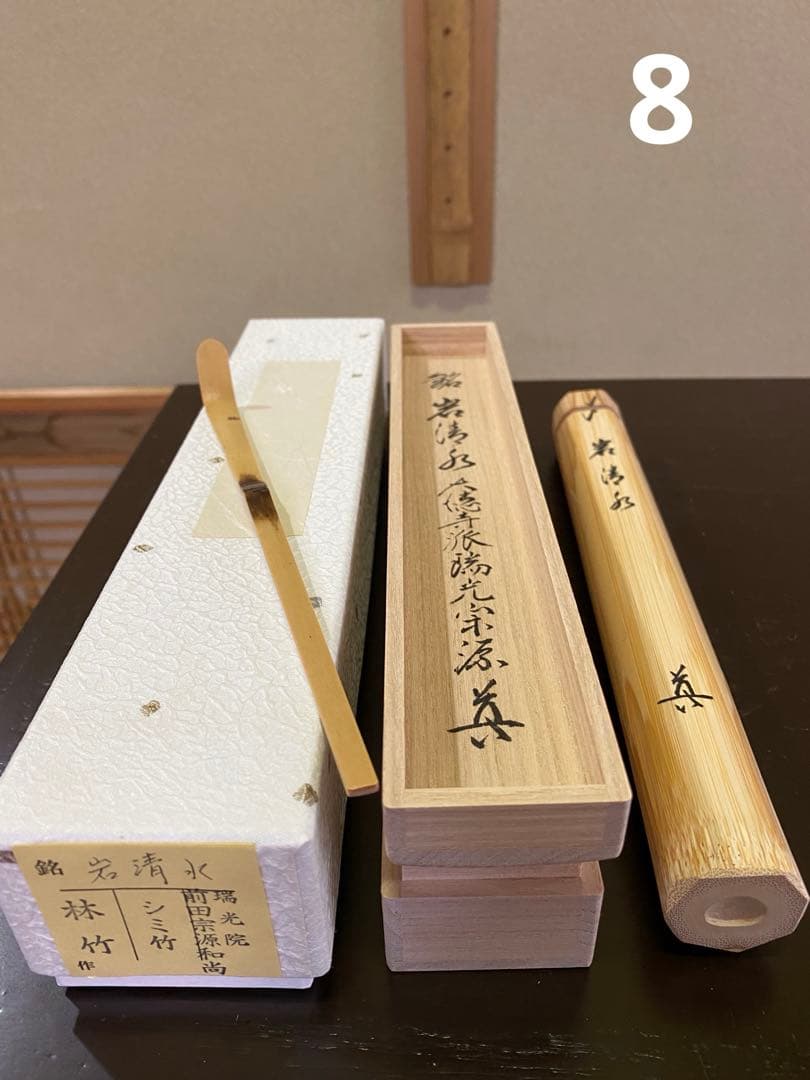 8
銘 岩清水
瑞光院
前田宗源和尚
シミ竹
林竹作
銘 岩清水 大徳寺派瑞光宗源
岩清水